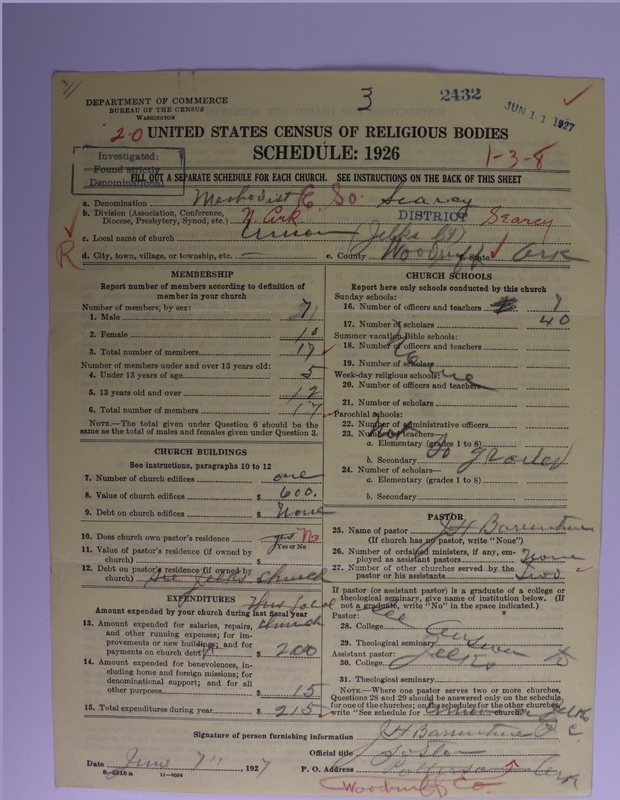 3
2432
JUN 11 1927
DEPARTMENT OF COMMERCE
BUREAU OF THE CENSUS
WASHINGTON
2-0 UNITED STATES CENSUS OF RELIGIOUS BODIES
SCHEDULE: 1926
1-3-8
Investigated:
Found strictly
Denominational
FILL OUT A SEPARATE SCHEDULE FOR EACH CHURCH. SEE INSTRUCTIONS ON THE BACK OF THIS SHEET
a. Denomination Methodist E So. Searcy
b. Division (Association, Conference, Diocese, Presbytery, Synod, etc.) N. Ark DISTRICT Searcy
c. Local name of church Union (Jelks
R
d. City, town, village, or township, etc. — e. County Woodruff State Ark
MEMBERSHIP
Report number of members according to definition of
member in your church
Number of members, by sex:
1. Male 7
2. Female 10
3. Total number of members 17
Number of members under and over 13 years old:
4. Under 13 years of age 5
5. 13 years old and over 12
6. Total number of members 17
NOTE.—The total given under Question 6 should be the
same as the total of males and females given under Question 3.
CHURCH BUILDINGS
See instructions, paragraphs 10 to 12
7. Number of church edifices one
8. Value of church edifices $ 600.
9. Debt on church edifices $ None
10. Does church own pastor's residence? yes No
Yes or No
11. Value of pastor's residence (if owned by
church) $
12. Debt on pastor's residence (if owned by
church) See Jelks church
EXPENDITURES
Amount expended by your church during last fiscal year
13. Amount expended for salaries, repairs, church
and other running expenses; for im-
provements or new buildings; and for
payments on church debt $ 200
14. Amount expended for benevolences, in-
cluding home and foreign missions; for
denominational support; and for all
other purposes $ 15
15. Total expenditures during year $ 215
CHURCH SCHOOLS
Report here only schools conducted by this church
Sunday schools:
16. Number of officers and teachers 7
17. Number of scholars 40
Summer vacation Bible schools:
18. Number of officers and teachers
19. Number of scholars
Week-day religious schools:
20. Number of officers and teachers
21. Number of scholars
Parochial schools:
22. Number of administrative officers
23. Number of teachers—
a. Elementary (grades 1 to 8)
b. Secondary
24. Number of scholars—
a. Elementary (grades 1 to 8)
b. Secondary
PASTOR
25. Name of pastor J H Barrentine
(If church has no pastor, write "None")
26. Number of ordained ministers, if any, em-
ployed as assistant pastors None
27. Number of other churches served by the
pastor or his assistants Two
If pastor (or assistant pastor) is a graduate of a college or
theological seminary, give name of institution below. (If
not a graduate, write "No" in the space indicated.)
Pastor: See Answer to
28. College
29. Theological seminary Jelks
Assistant pastor:
30. College
31. Theological seminary
NOTE.—Where one pastor serves two or more churches,
Questions 28 and 29 should be answered only on the schedule
for one of the churches; on the schedules for the other churches
write "See schedule for church."
Signature of person furnishing information J H Barrentine P C
Official title Pastor
Date June 7", 1927 P. O. Address Patterson Ark
8-2618a 11-9024
Woodruff Co